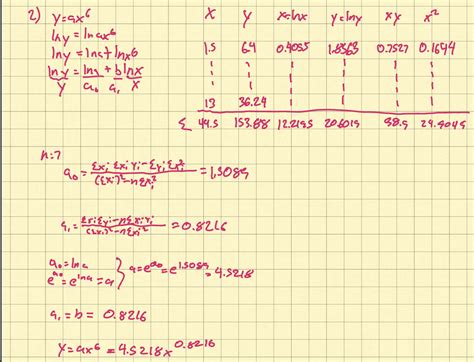 2) y=ax^b
lny = lnax^b
lny = lna + lnx^b
lny = lna + blnx
Y a₀ a₁ X
x y X=lnx Y=lny XY X²
1.5 64 0.4055 1.8563 0.7527 0.1644
13 36.24
Σ 44.5 153.88 12.2195 20.6015 38.9 24.9045
n=7
a₀ = (Σxᵢ Σxᵢyᵢ - Σyᵢ Σxᵢ²)/((Σxᵢ)² - nΣxᵢ²) = 1.5089
a₁ = (ΣxᵢΣyᵢ - nΣxᵢyᵢ)/((Σxᵢ)² - nΣxᵢ²) = 0.8216
a₀ = lna
e^a₀ = e^lna = a } a = e^a₀ = e^1.5089 = 4.5218
a₁ = b = 0.8216
y = ax^b = 4.5218x^0.8216